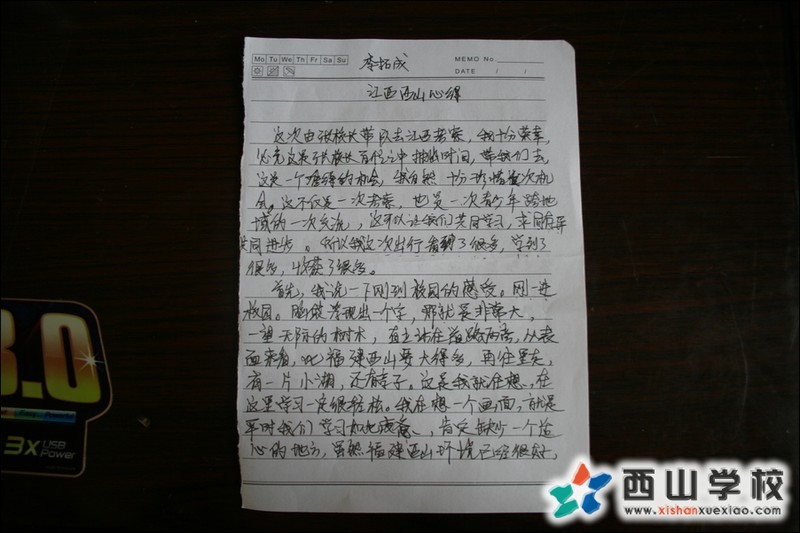 Mo Tu We Th Fr Sa Su
MEMO No.
DATE / /
李拓成
江西西山心得
这次由张校长带队去江西考察，我十分荣幸，
必竟这是张校长百忙之中抽出时间，带我们去，
这是一个难得的机会，我自然十分珍惜这次机
会。这不仅是一次考察，也是一次青少年跨地
域的一次交流，这可以让我们共同学习，求同存异
共同进步。所以我这次出行看到了很多，学到了
很多，收获了很多。
首先，我说一下刚到校园的感受。刚一进
校园。脑袋浮现出一个字，那就是非常大，
一望无际的树木，直立站在道路两旁，从表
面来看，比福建西山要大得多，再往里走，
有一片小湖，还有亭子。这是我就在想，在
这里学习一定很轻松。我在想一个画面，就是
平时我们学习如此疲惫，肯定缺少一个造
心的地方，虽然福建西山环境已经很好，
3.0
3x USB
Power
西山学校
www.xishanxuexiao.com